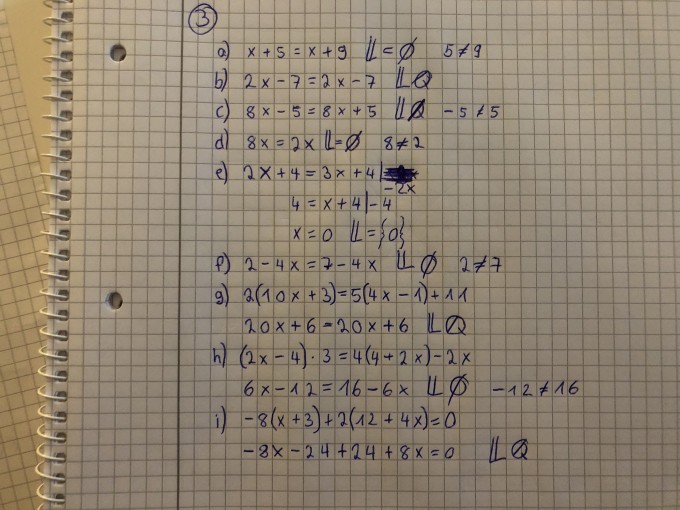 3
a) x + 5 = x + 9 𝕃 = ∅ 5 ≠ 9
b) 2x - 7 = 2x - 7 𝕃 ℚ
c) 8x - 5 = 8x + 5 𝕃 ∅ - 5 ≠ 5
d) 8x = 2x 𝕃 = ∅ 8 ≠ 2
e) 2x + 4 = 3x + 4 | - 2x
4 = x + 4 | - 4
x = 0 𝕃 = {0}
f) 2 - 4x = 7 - 4x 𝕃 ∅ 2 ≠ 7
g) 2(10x + 3) = 5(4x - 1) + 11
20x + 6 = 20x + 6 𝕃 ℚ
h) (2x - 4) · 3 = 4(4 + 2x) - 2x
6x - 12 = 16 - 6x 𝕃 ∅ - 12 ≠ 16
i) -8(x + 3) + 2(12 + 4x) = 0
-8x - 24 + 24 + 8x = 0 𝕃 ℚ